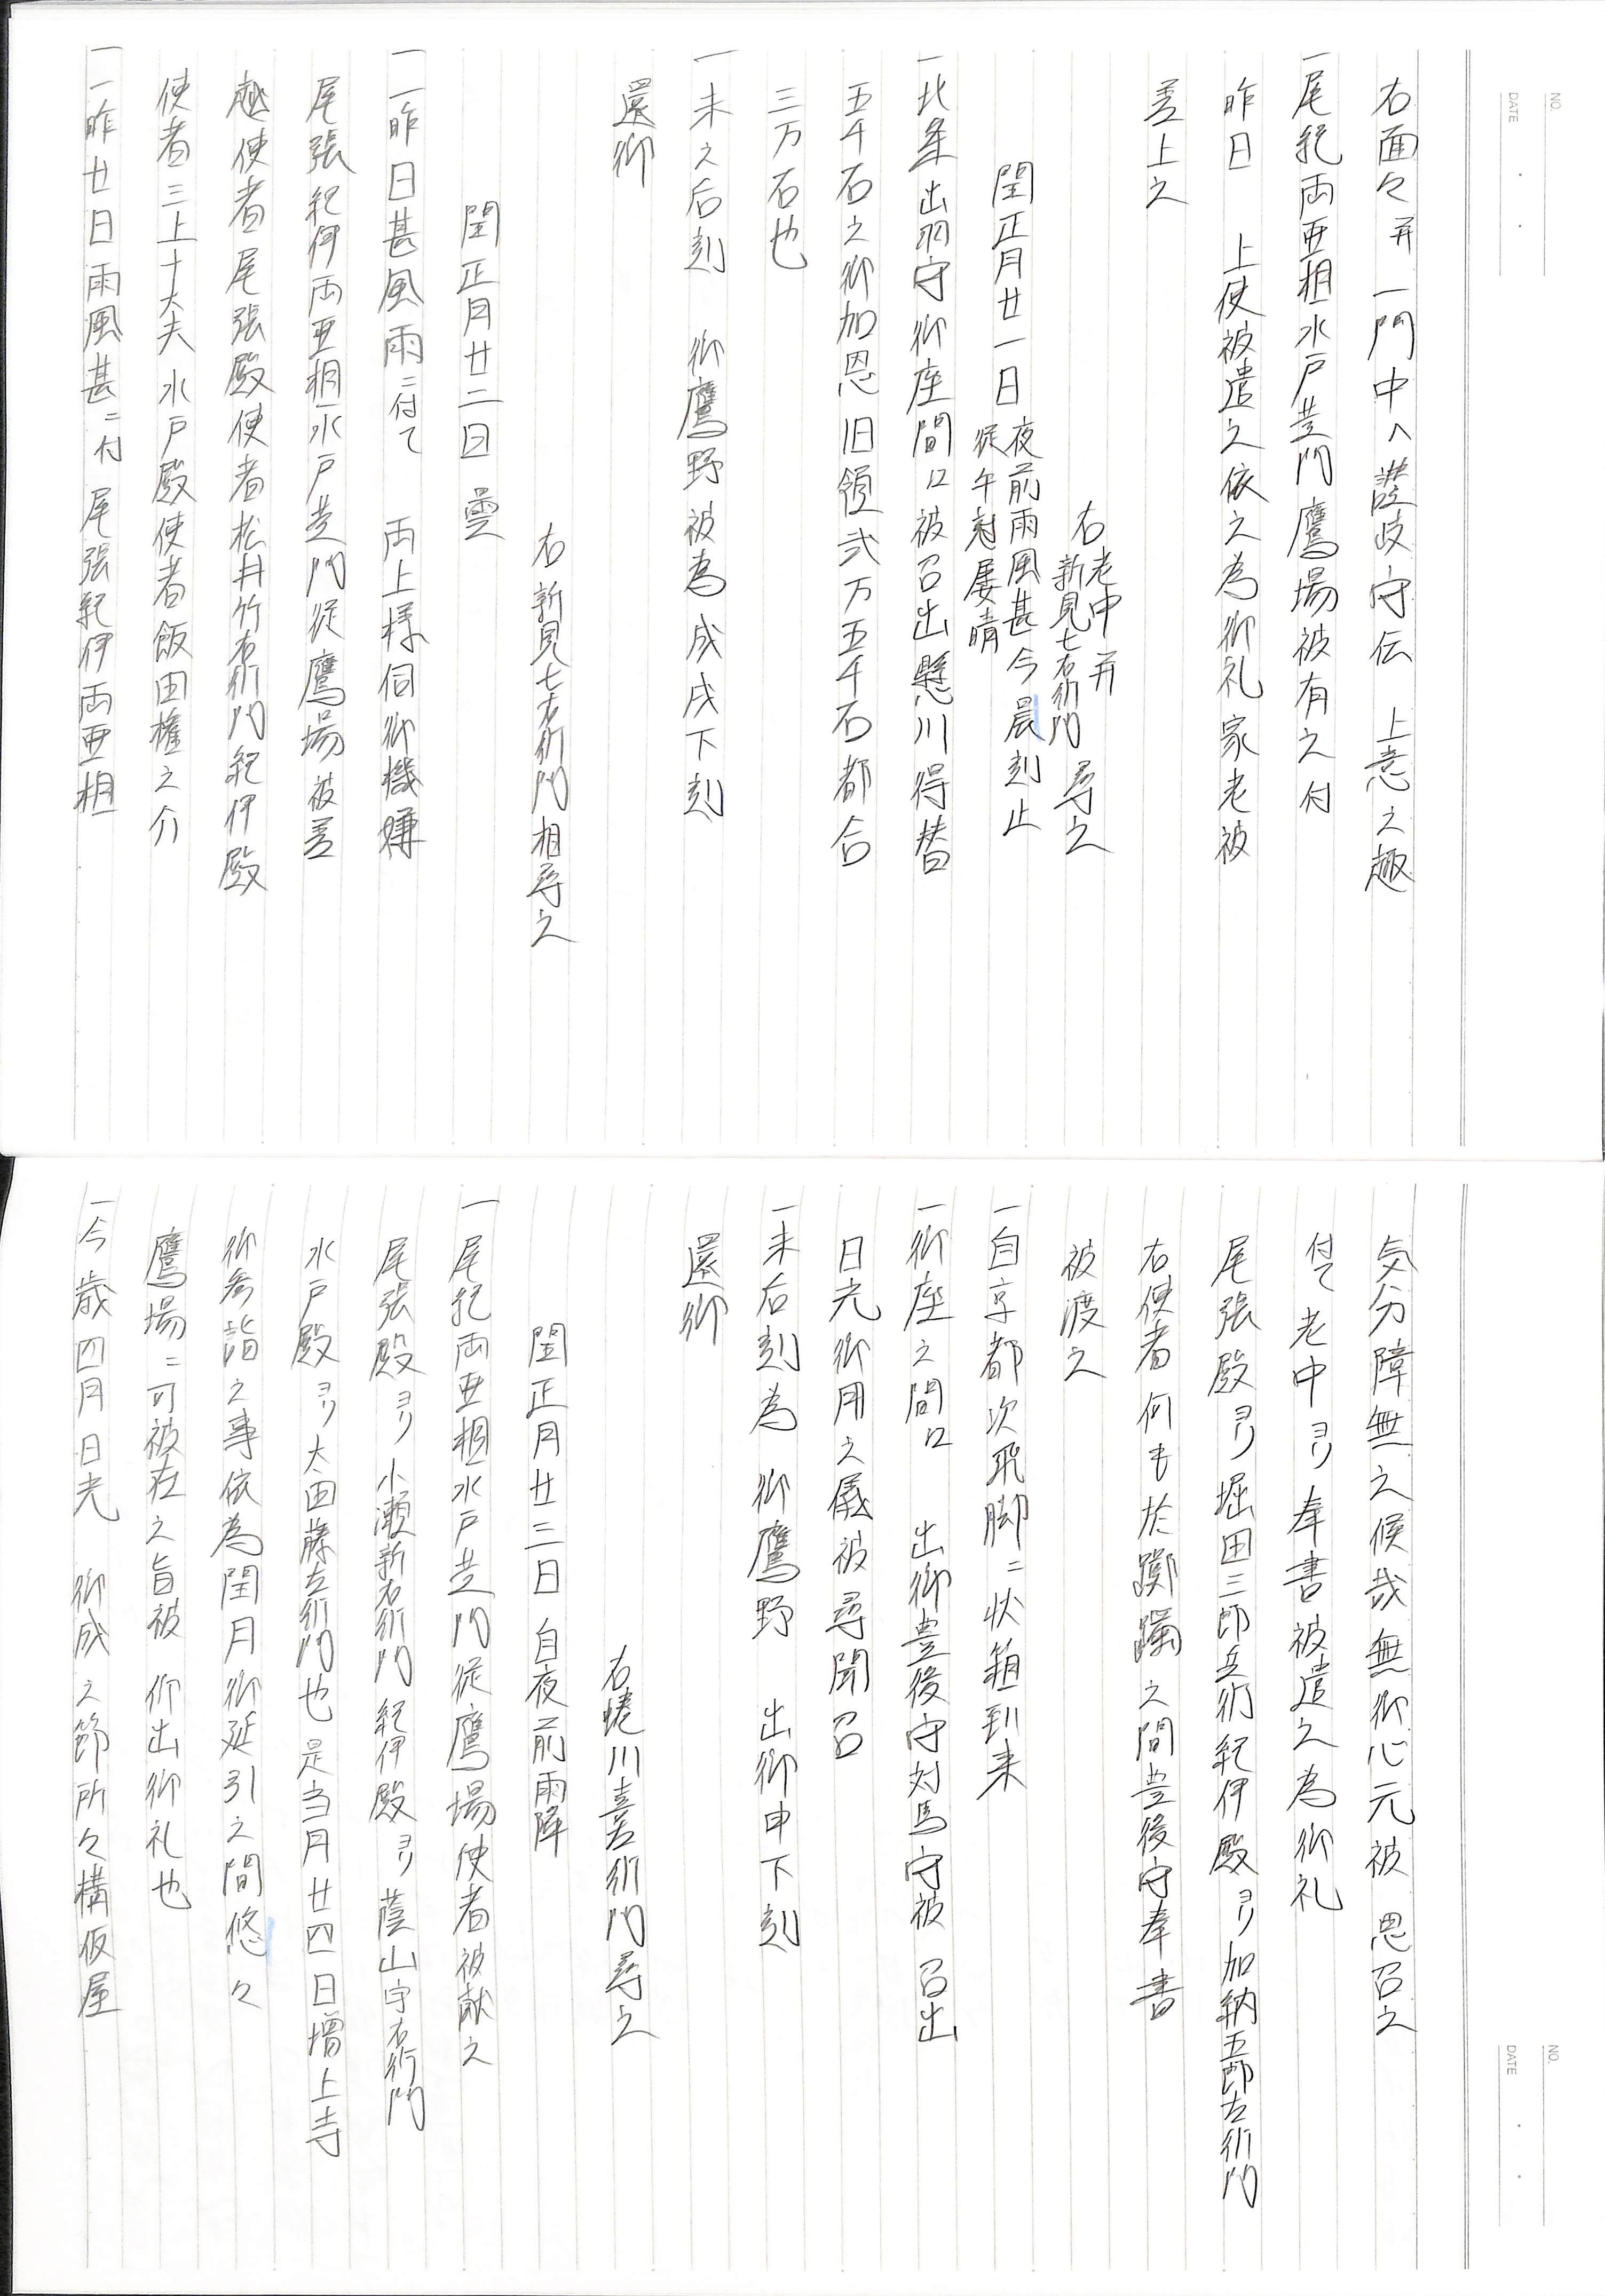 NO.
DATE
右面々并一門中へ讃岐守伝 上意之趣
一尾紀両亜相水戸黄門鷹場被有之付
昨日 上使被遣之依之為御礼家老被
差上之
右老中并新見七右衛門尋之
閏正月廿一日夜前雨風甚今晨刻止
従午刻屡晴
一北条出羽守御座間江被召出懸川得替
五千石之御加恩旧領弐万五千石都合
三万石也
一未之后刻 御鷹野被為成戌下刻
還御
右新見七右衛門相尋之
閏正月廿二日 曇
一一昨日甚風雨ニ付て 両上様伺御機嫌
尾張紀伊両亜相水戸黄門従鷹場被差
越使者尾張殿使者松井竹右衛門紀伊殿
使者三上十大夫水戸殿使者飯田権之介
一一昨廿日雨風甚ニ付尾張紀伊両亜相
NO.
DATE
気分障無之候哉無御心元被 思召之
付て老中ヨリ奉書被遣之為御礼
尾張殿ヨリ堀田三郎兵衛紀伊殿ヨリ加納五郎左衛門
右使者何も於躑躅之間豊後守奉書
被渡之
一自京都次飛脚ニ状箱到来
一御座之間江 出御豊後守対馬守被 召出
日光御用之儀被尋聞召
一未后刻為 御鷹野 出御申下刻
還御
右蜷川喜左衛門尋之
閏正月廿三日 自夜前雨降
一尾紀両亜相水戸黄門従鷹場使者被献之
尾張殿ヨリ小瀬新右衛門紀伊殿ヨリ蔭山宇右衛門
水戸殿ヨリ大田藤左衛門也是当月廿四日増上寺
御参詣之事依為閏月御延引之間悠々
鷹場ニ可被在之旨被 仰出御礼也
一今歳四月日光 御成之節所々構仮屋